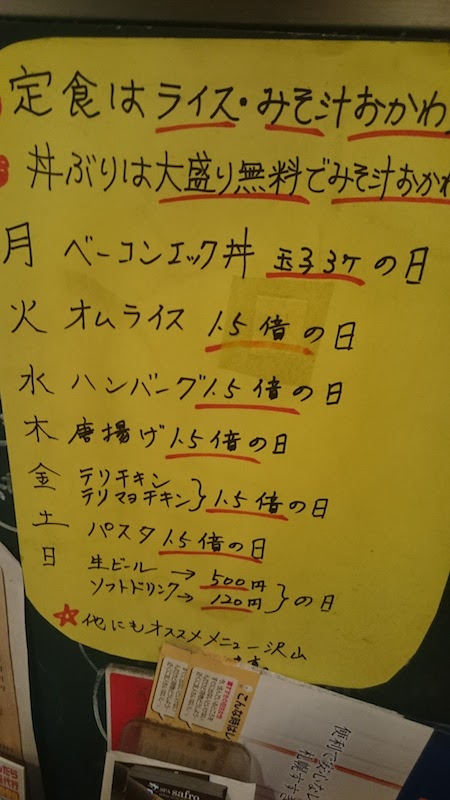 定食はライス・みそ汁おかわ
丼ぶりは大盛り無料でみそ汁おかわ
月 ベーコンエック丼 玉子3ヶの日
火 オムライス 1.5倍の日
水 ハンバーグ1.5倍の日
木 唐揚げ1.5倍の日
金 テリチキン
テリマヨチキン}1.5倍の日
土 パスタ1.5倍の日
日 生ビール→500円
ソフトドリンク→120円}の日
☆他にもオススメメニュー沢山
こんな時はし
便利で安心な
safro